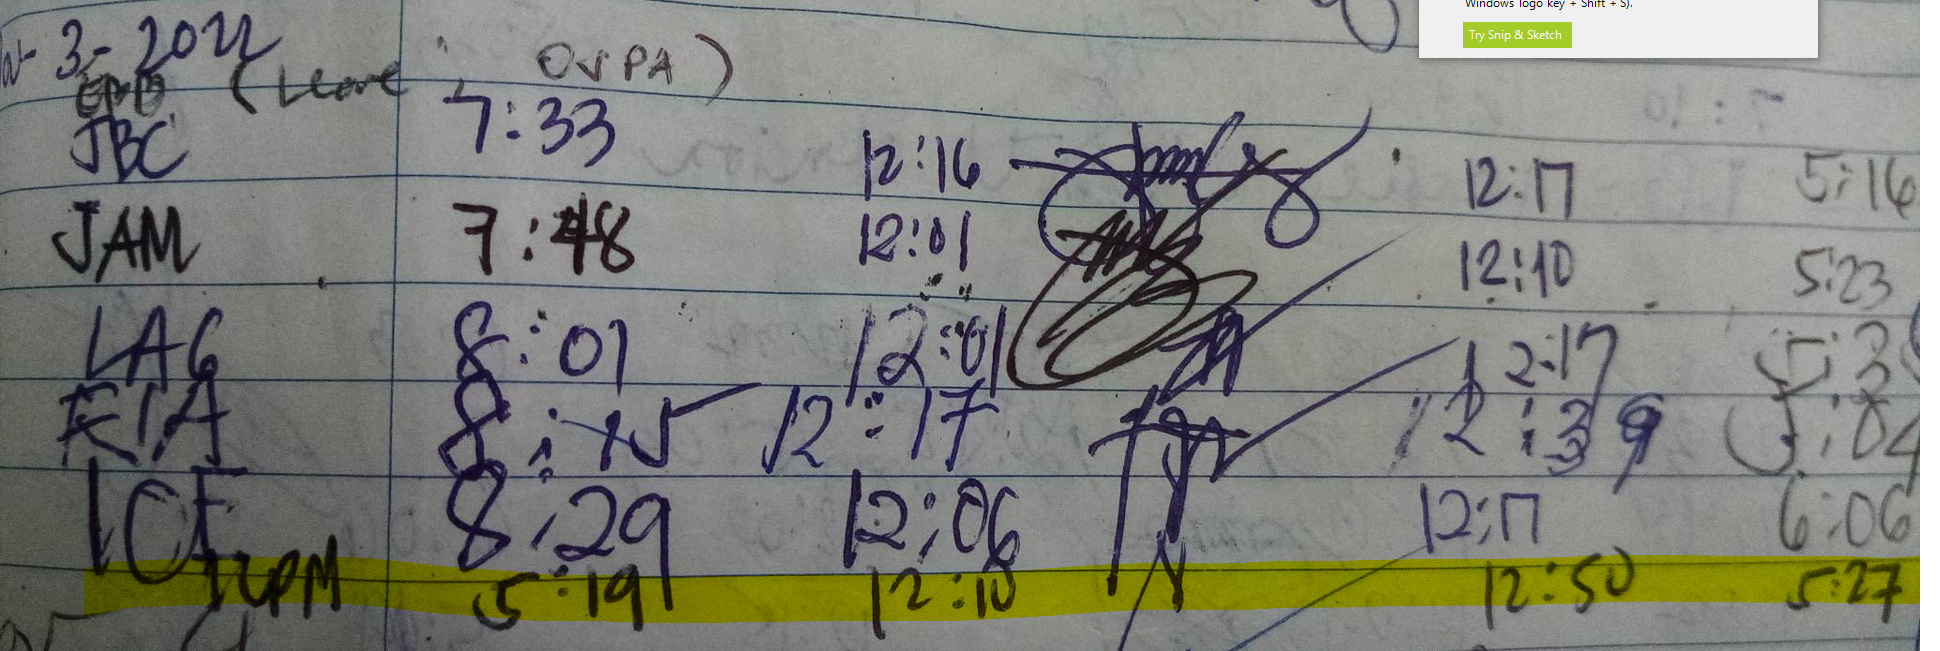 Windows logo key + Shift + S).
Try Snip & Sketch
3-2022
(Leave OVPA)
JBC 7:33 12:16 12:17 5:16
JAM 7:48 12:01 12:10 5:23
LAG 8:01 12:01 12:17 5:3
8:15 12:17 12:39 5:04
8:29 12:06 12:17 6:06
5:19 12:10 12:50 5:27